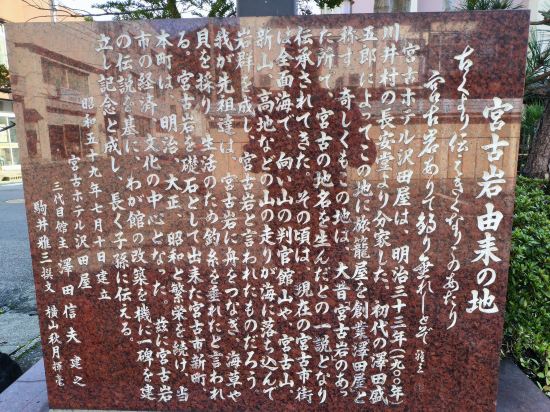 宮古岩由来の地
古くより伝へきくなりこのあたり
宮古岩ありて釣り垂れしとぞ 雅三
宮古ホテル沢田屋は、明治三十三年(一九〇〇年)
川井村の長安堂より分家した、初代の澤田盛
五郎によってこの地に旅籠屋を創業澤田屋と
称す。奇しくもこの地は、大昔宮古岩のあっ
た所で、宮古の地名を生んだとの一説となり
伝承されてきた。その頃は、現在の宮古市街
は全面海で、向い山の判官館山や、宮古山、
新山、高地などの山の走りが海に落ち込んで
岩群を成し、宮古岩と言われたものだろう。
我が先祖達は、宮古岩に舟をつなぎ、海草や
貝を採り、生活のため釣糸を垂れたと言われ
る。宮古岩を礎石として出来た宮古市新町、
本町は、明治、大正、昭和と繁栄を続け、当
市の経済、文化の中心となった。茲に宮古岩
の伝説を基に、わが館の改築を機に一碑を建
立し記念と成し、長く子孫に伝える。
昭和五十九年七月十日建立
宮古ホテル沢田屋
三代目館主 澤田信夫 建之
駒井雅三撰文 横山秋月揮毫